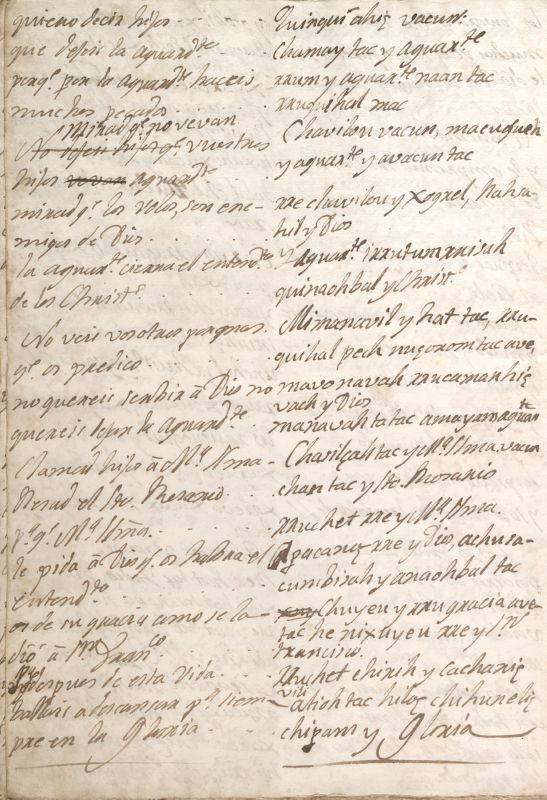 quieno decir hijos
que dejeis la aguard.te
porq.e por la aguard.te haceis
muchos pecados.
Mirad q.e no vevan
No hijos q.e vuestros
hijos vevan aguard.te
mirad q.e los volos, son ene-
migos de Dios.
la aguar.te cierra el entend.to
de los Christ.s
No veis vosotros porq mas
q.e os predico.
no quereis servir â Dios no
quereis dejar la aguard.te
Clamad hijos â M.a S̃ma-
Resad el S.to Rosario.
p.a q.e M.a S̃ma.
le pida â Dios q.e os habra el
entend.to
os de su gracia como se la-
dio â S.n Fran.co
despues de esta Vida
ballais a descansar p.a siem-
pre en la Gloria.
Quinqui ahiz vacun.
chamay tac y aquar.te
rrum y aquar.te naan tac
rruquihal mac
Chavilou vacun, macuqueh
y aquar.te y avacun tac
rre chavilou y xogrel,
hil y Dios
Y aquar.te irrutumrrisah
quinaohbal y Christ.s
Mimanavil y hat tac, rru-
quihal pech nuçoromtac ave,
mavonavah rrucamanhiz
vach y Dios
manavah ta tac amayamaquar.te
Chavilçah tac y M.a S̃ma, vacun
chan tac y S.to Rosario
rruchet rre y M.a S̃ma.
rre y Dios, achusa-
cumbisah y anaohbal tac
chuyeu y rru gracia ave
tac he nixuyeu rre y S.n
francisco.
rruchet chirih y cacharric
atioh tac hiloc chihunelic
chipam y Gloria